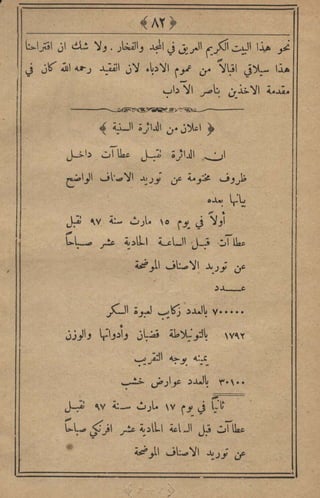 ﴿ ٨٢ ﴾
نحو هذا البيت الكريم العريق في المجد والفخار . ولا شك ان اقتراحنا
هذا سيلاقي اقبالاً من عموم الادباء لان الفقيد رحمه الله كان في
مقدمة الاخذين بناصر الآداب
﴿ اعلان من الدائرة السنية ﴾
ان الدائرة تقبل عطاآت داخل
ظروف مختومة عن توريد الاصناف الواضح
بيانها بعده
أولاً في يوم ١٥ مارث سنة ٩٧ تقبل
عطاآت قبل الساعة الحادية عشر صباحاً
عن توريد الاصناف الموضحة
عدد
٧٠٠٠٠٠ بالعدد زكايب لعبوة السكر
١٧٩٢ بالتونيلاطة قضبان وأدواتها والوزن
يمينه بوجه التقريب
٣٠١٠٠ بالعدد عوارض خشب
ثانياً في يوم ١٧ مارث سنة ٩٧ تقبل
عطاآت قبل الساعة الحادية عشر افرنكي صباحاً
عن توريد الاصناف الموضحة